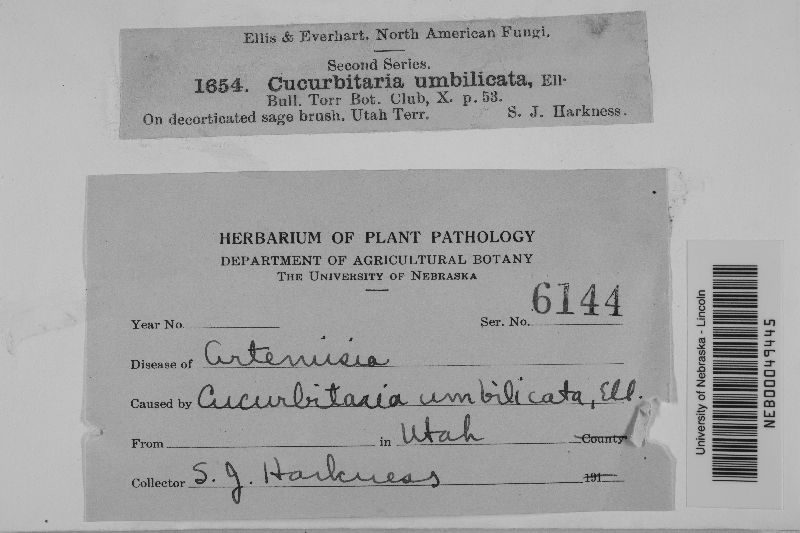 Ellis & Everhart. North American Fungi.
Second Series.
1654. Cucurbitaria umbilicata, Ell-
Bull. Torr Bot. Club, X. p. 53.
On decorticated sage brush. Utah Terr. S. J. Harkness.
HERBARIUM OF PLANT PATHOLOGY
DEPARTMENT OF AGRICULTURAL BOTANY
THE UNIVERSITY OF NEBRASKA
Year No. Ser. No. 6144
Disease of Artemisia
Caused by Cucurbitaria umbilicata, Ell.
From in Utah County
Collector S. J. Harkness 191
University of Nebraska - Lincoln
NEB00049445